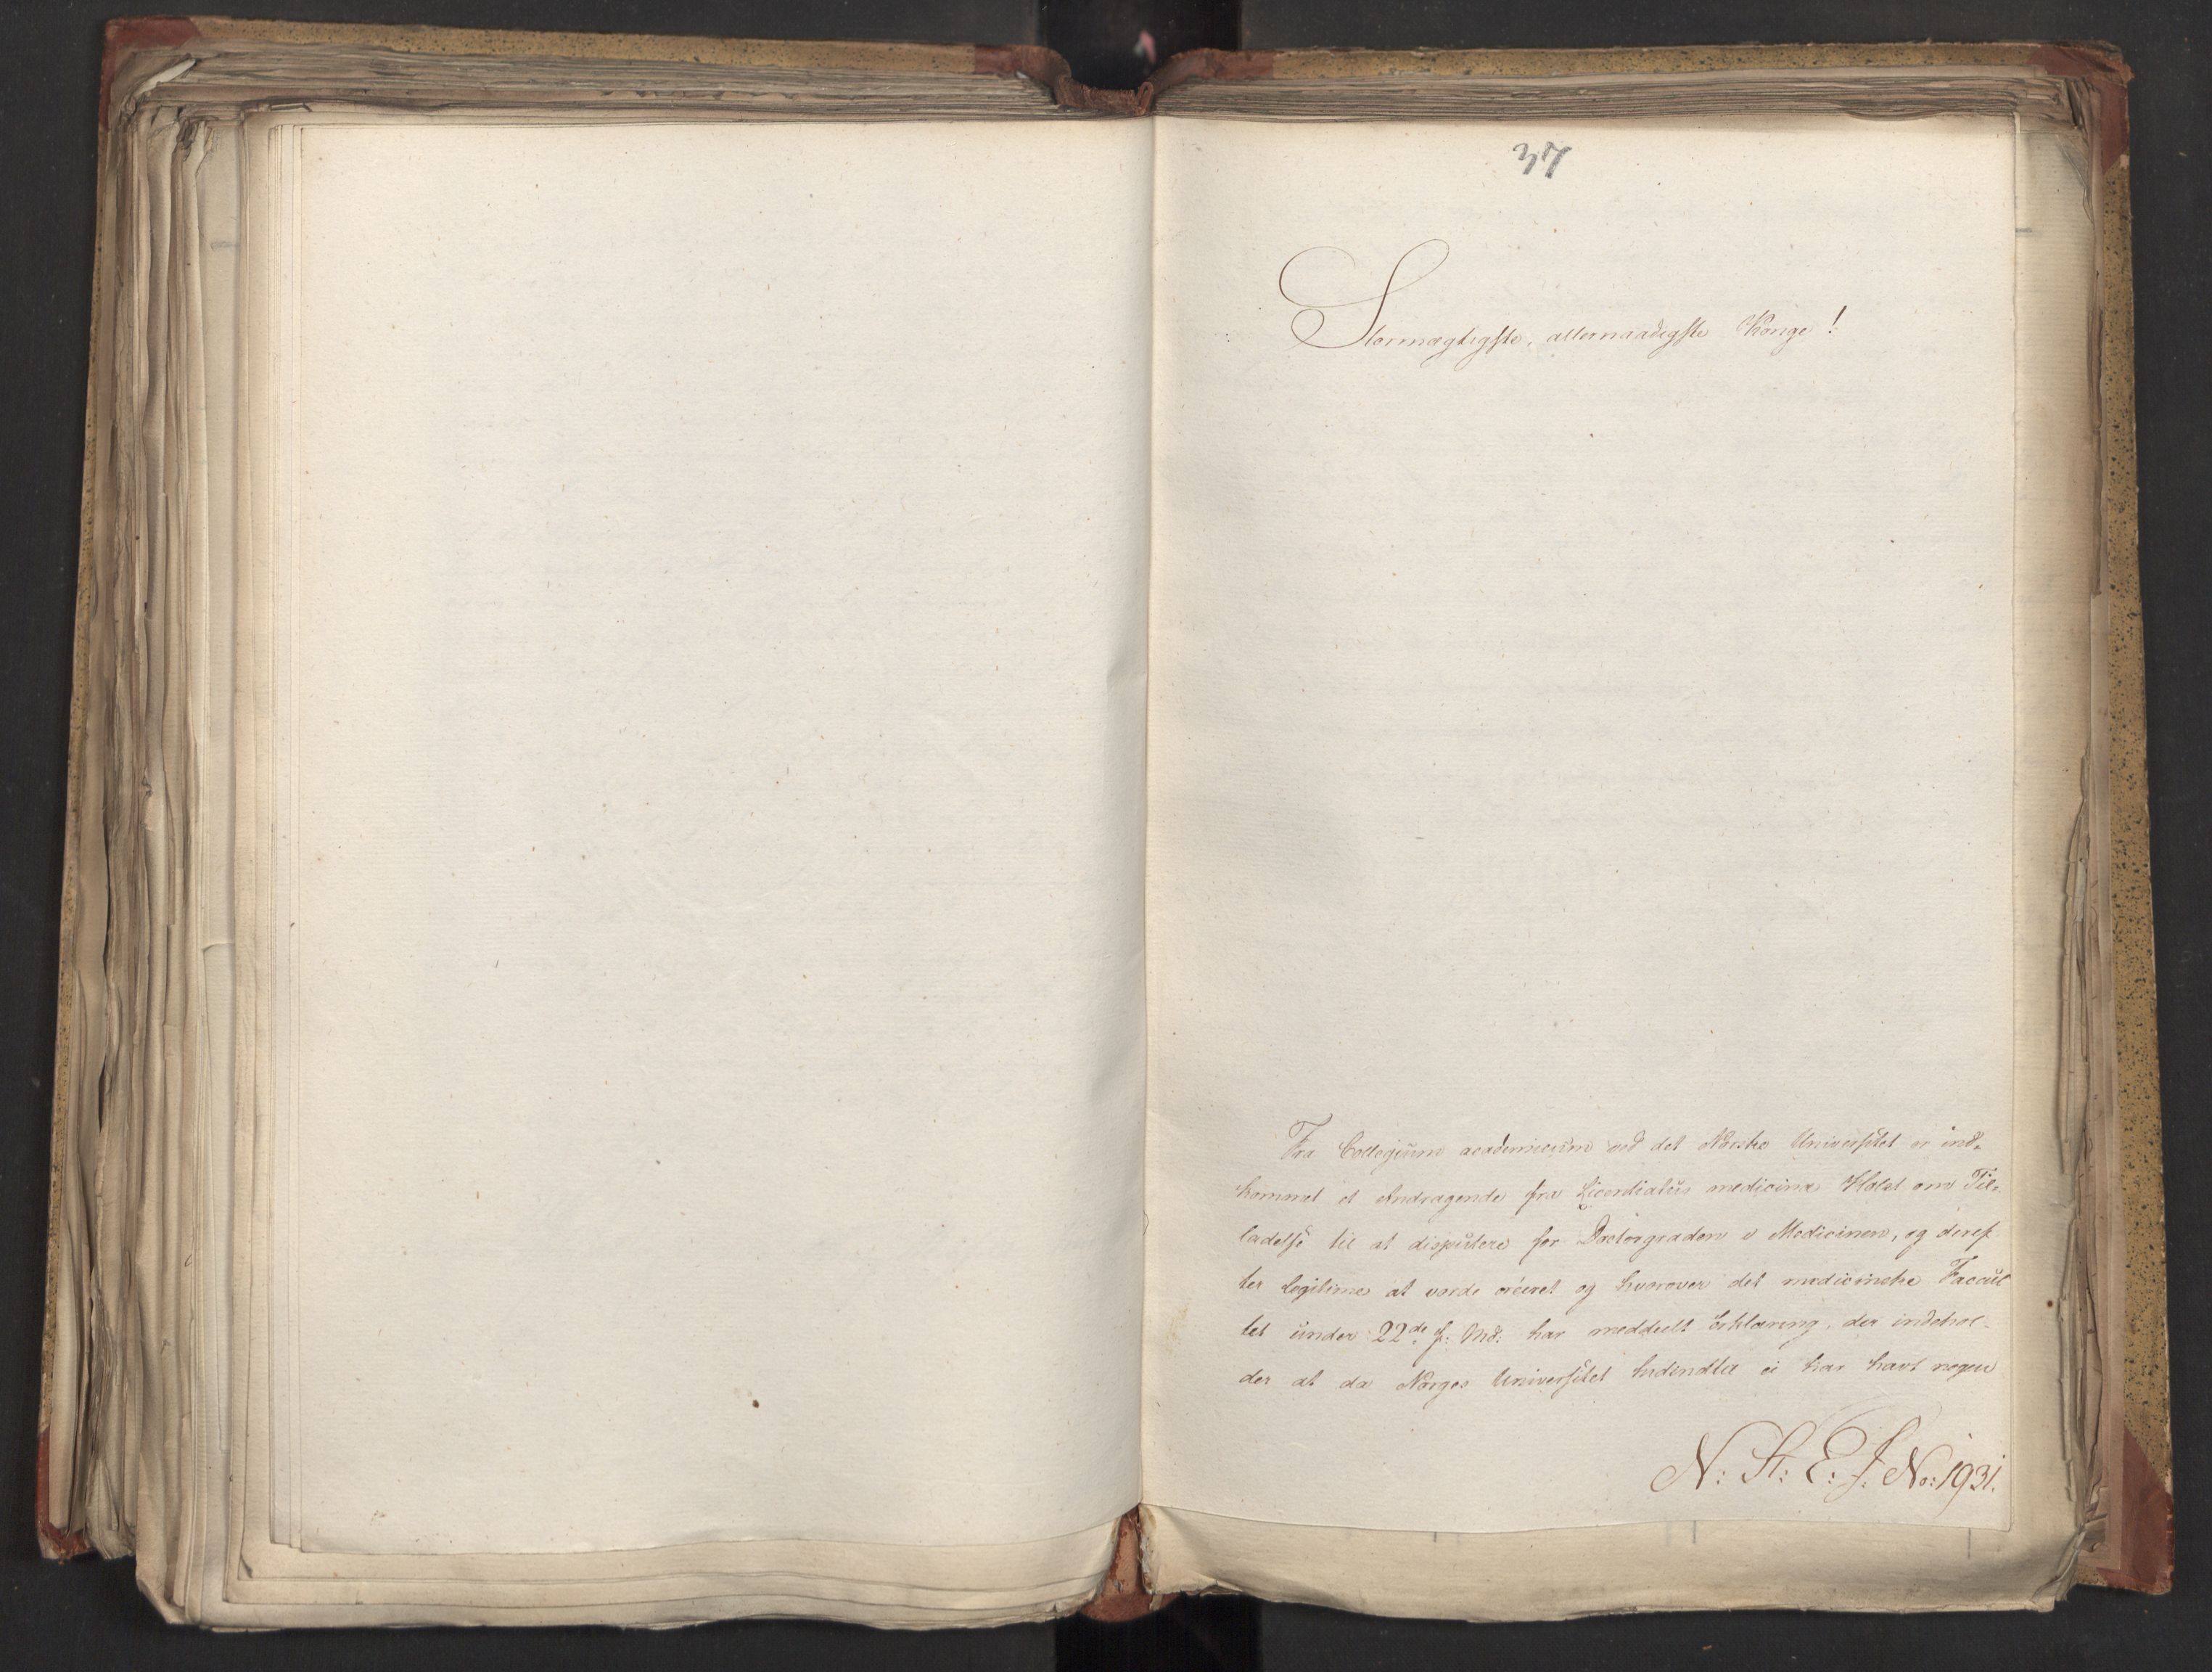 37
Stormægtigste, allernaadigste Konge!
Fra Collegium academicum ved det Norske Universitet er ind-
kommet et Andragende fra Licentiatus medicinæ Holst om Til-
ladelse til at disputere for Doctorgraden i Medicinen, og deref
ter legitime at vorde creeret og hvorover det medicinske Facul
tet under 22de f: Md: har meddeelt Erklæring, der indehol-
der at da Norges Universitet hidindtil ei har havt nogen
N: St: E: J: No: 1931.